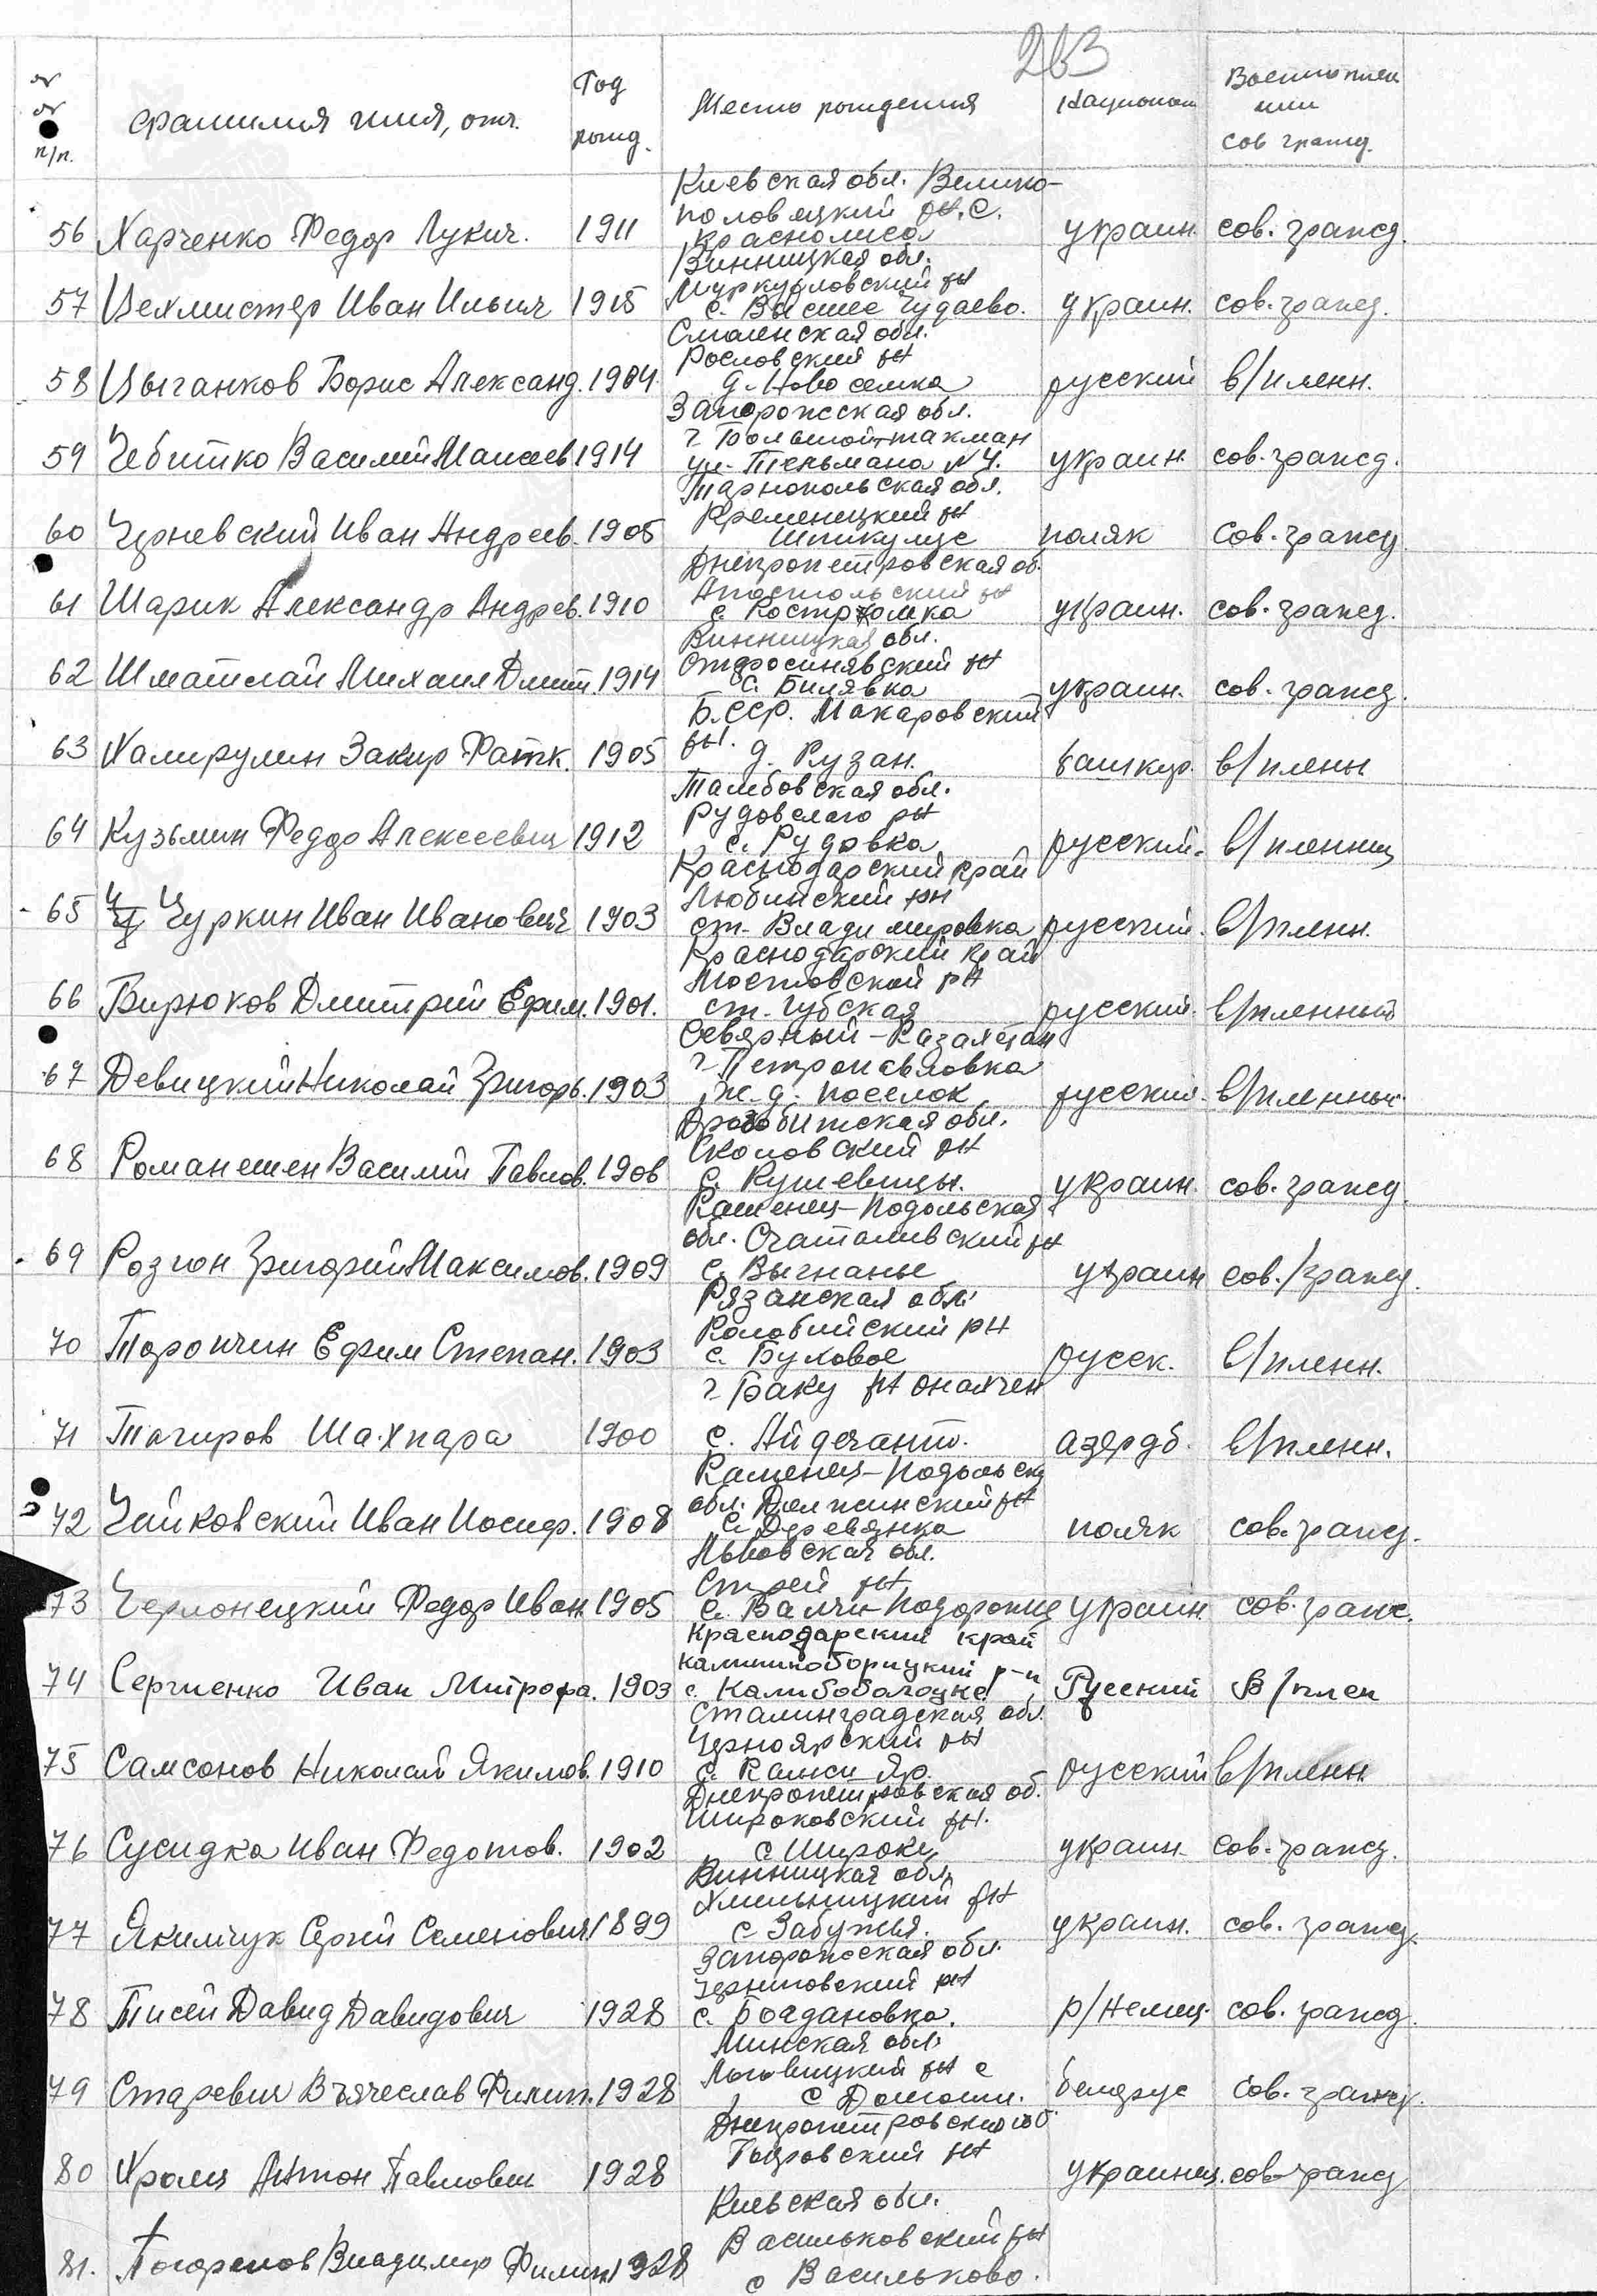 263
№ № п/п. Фамилия имя, отч. Год рожд. Место рождения Национал Военноплен или сов гражд.
Киевская обл. Велико-
половецкий рн. с.
56 Харченко Федор Лукич. 1911 Краснолиса украин. сов. гражд.
Винницкая обл.
рн
57 Цехмистер Иван Ильич 1915 с. Высшее Чудаево. украин. сов. гражд.
Смоленская обл.
Рословский рн
58 Цыганков Борис Александ. 1904 д. Ново селка русский в/пленн.
Запорожская обл.
г Большой токман
59 Чебитко Василий Моисеев 1914 ул. Тельмана №4. украин сов. гражд.
Тарнопольская обл.
Кременецкий рн
60 Черневский Иван Андреев. 1905 поляк сов. гражд
Днепропетровская об.
Апостольский рн
61 Шарик Александр Андрев. 1910 с. Костромка украин. сов. гражд.
Винницкая обл.
Старосинявский рн
62 Михаил Дмит 1914 с. Билявка украин. сов. гражд.
Б.ССР. Макаровский
63 Халирулин Закир Фатк. 1905 рн. д. Кузан. башкир. в/плены
Тамбовская обл.
Рудовского рн
64 Кузьмин Федор Алексеевич 1912 с. Рудовка русский. в/пленниц
Краснодарский край
Любинский рн
65 Чуркин Иван Иванович 1903 ст. Владимировка русский. в/пленн.
Краснодарский край
Мостовской рн
66 Бирюков Дмитрий Ефим. 1901. ст. Губская русский. в/пленный
Северный-Казахстан
г Петропавловка
67 Девицкий Николай Григорь. 1903 ж.д. поселок русский. в/пленный
Дрогобитская обл.
Сколовский рн
68 Романешен Василий Павлов. 1906 с. украин. сов. гражд.
Каменец-Подольская
обл. рн
69 Розгон Григорий Максимов. 1909 с. Выгнанье украин сов./гражд.
Рязанская обл.
рн
70 Торопчин Ефим Степан. 1903 с. Буховое русск. в/пленн.
г. Баку рн
71 Тагиров Шахпара 1900 с. азердб. в/пленн.
Каменец-Подольску
обл. рн
72 Чайковский Иван Иосиф. 1908 с. Деревянка поляк сов. гражд.
Львовская обл.
Стрей рн
73 Федор Иван 1905 с. украин сов. гражд.
Краснодарский край
р-н
74 Сергиенко Иван Митрофа. 1903 с. Русский в/плен
Сталинградская обл.
Черноярский рн
75 Самсонов Николай Якимов. 1910 с. Яр. русский в/пленн
Днепропетровская об.
Широковский рн.
76 Сусидка Иван Федотов. 1902 с Широки украин. сов. гражд.
Винницкая обл,
Хмельницкий рн
77 Якимчук Сергей Семенович 1899 с Забужья. украин. сов. гражд.
Запорожская обл.
Черниговский рн
78 Тисен Давид Давидович 1928 с. Богдановка. р/немец. сов. гражд.
Минская обл.
рн с
79 Старевич Вячеслав Филип. 1928 с белорус сов. гражд.
Днепропетровский об.
рн
80 Кролц Антон Павлович 1928 украинец. сов. гражд
Киевская обл.
Васильковский рн
81. Владимир Филип 1928 с Васильково.